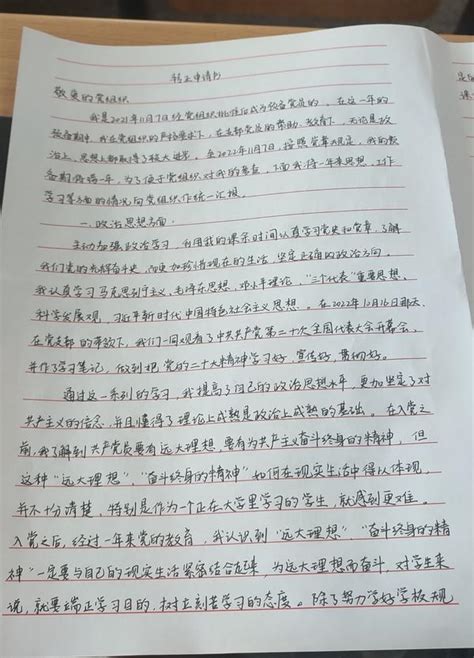 转正申请书
敬爱的党组织
我是2021年11月7日经党组织批准成为预备党员的。在这一年的
预备期中,我在党组织的严格要求下,在支部党员的帮助、教育下,无论是政
治上,思想上都取得了极大进步。至2022年11月7日,按照党章规定,我的预
备期将满一年,为了便于党组织对我的考查,下面我将一年来思想、工作
学习等方面的情况向党组织作统一汇报。
一、政治思想方面
主动加强政治学习,利用我的课余时间认真学习党史和党章,了解
我们党的光辉奋斗史,而更加珍惜现在的生活,坚定正确的政治方向。
我认真学习马克思列宁主义、毛泽东思想、邓小平理论、“三个代表”重要思想、
科学发展观、习近平新时代中国特色社会主义思想。在2022年10月16日那天,
在党支部的带领下,我们一同观看了中共共产党第二十次全国代表大会开幕会,
并作了学习笔记,做到把党的二十大精神学习好、宣传好、贯彻好。
通过这一系列的学习,我提高了自己的政治思想水平,更加坚定了对
共产主义的信念,并且懂得了理论上成熟是政治上成熟的基础。在入党之
前,我了解到共产党员要有远大理想,要有为共产主义奋斗终身的精神,但
这种“远大理想”、“奋斗终身的精神”如何在现实生活中得以体现,
并不十分清楚,特别是作为一个正在大学里学习的学生,就感到更难。
入党之后,经过一年来党的教育,我认识到“远大理想”、“奋斗终身的精
神”一定要与自己的现实生活紧密结合起来,为远大理想而奋斗,对学生来
说,就要端正学习目的,树立刻苦学习的态度。除了努力学好学校规